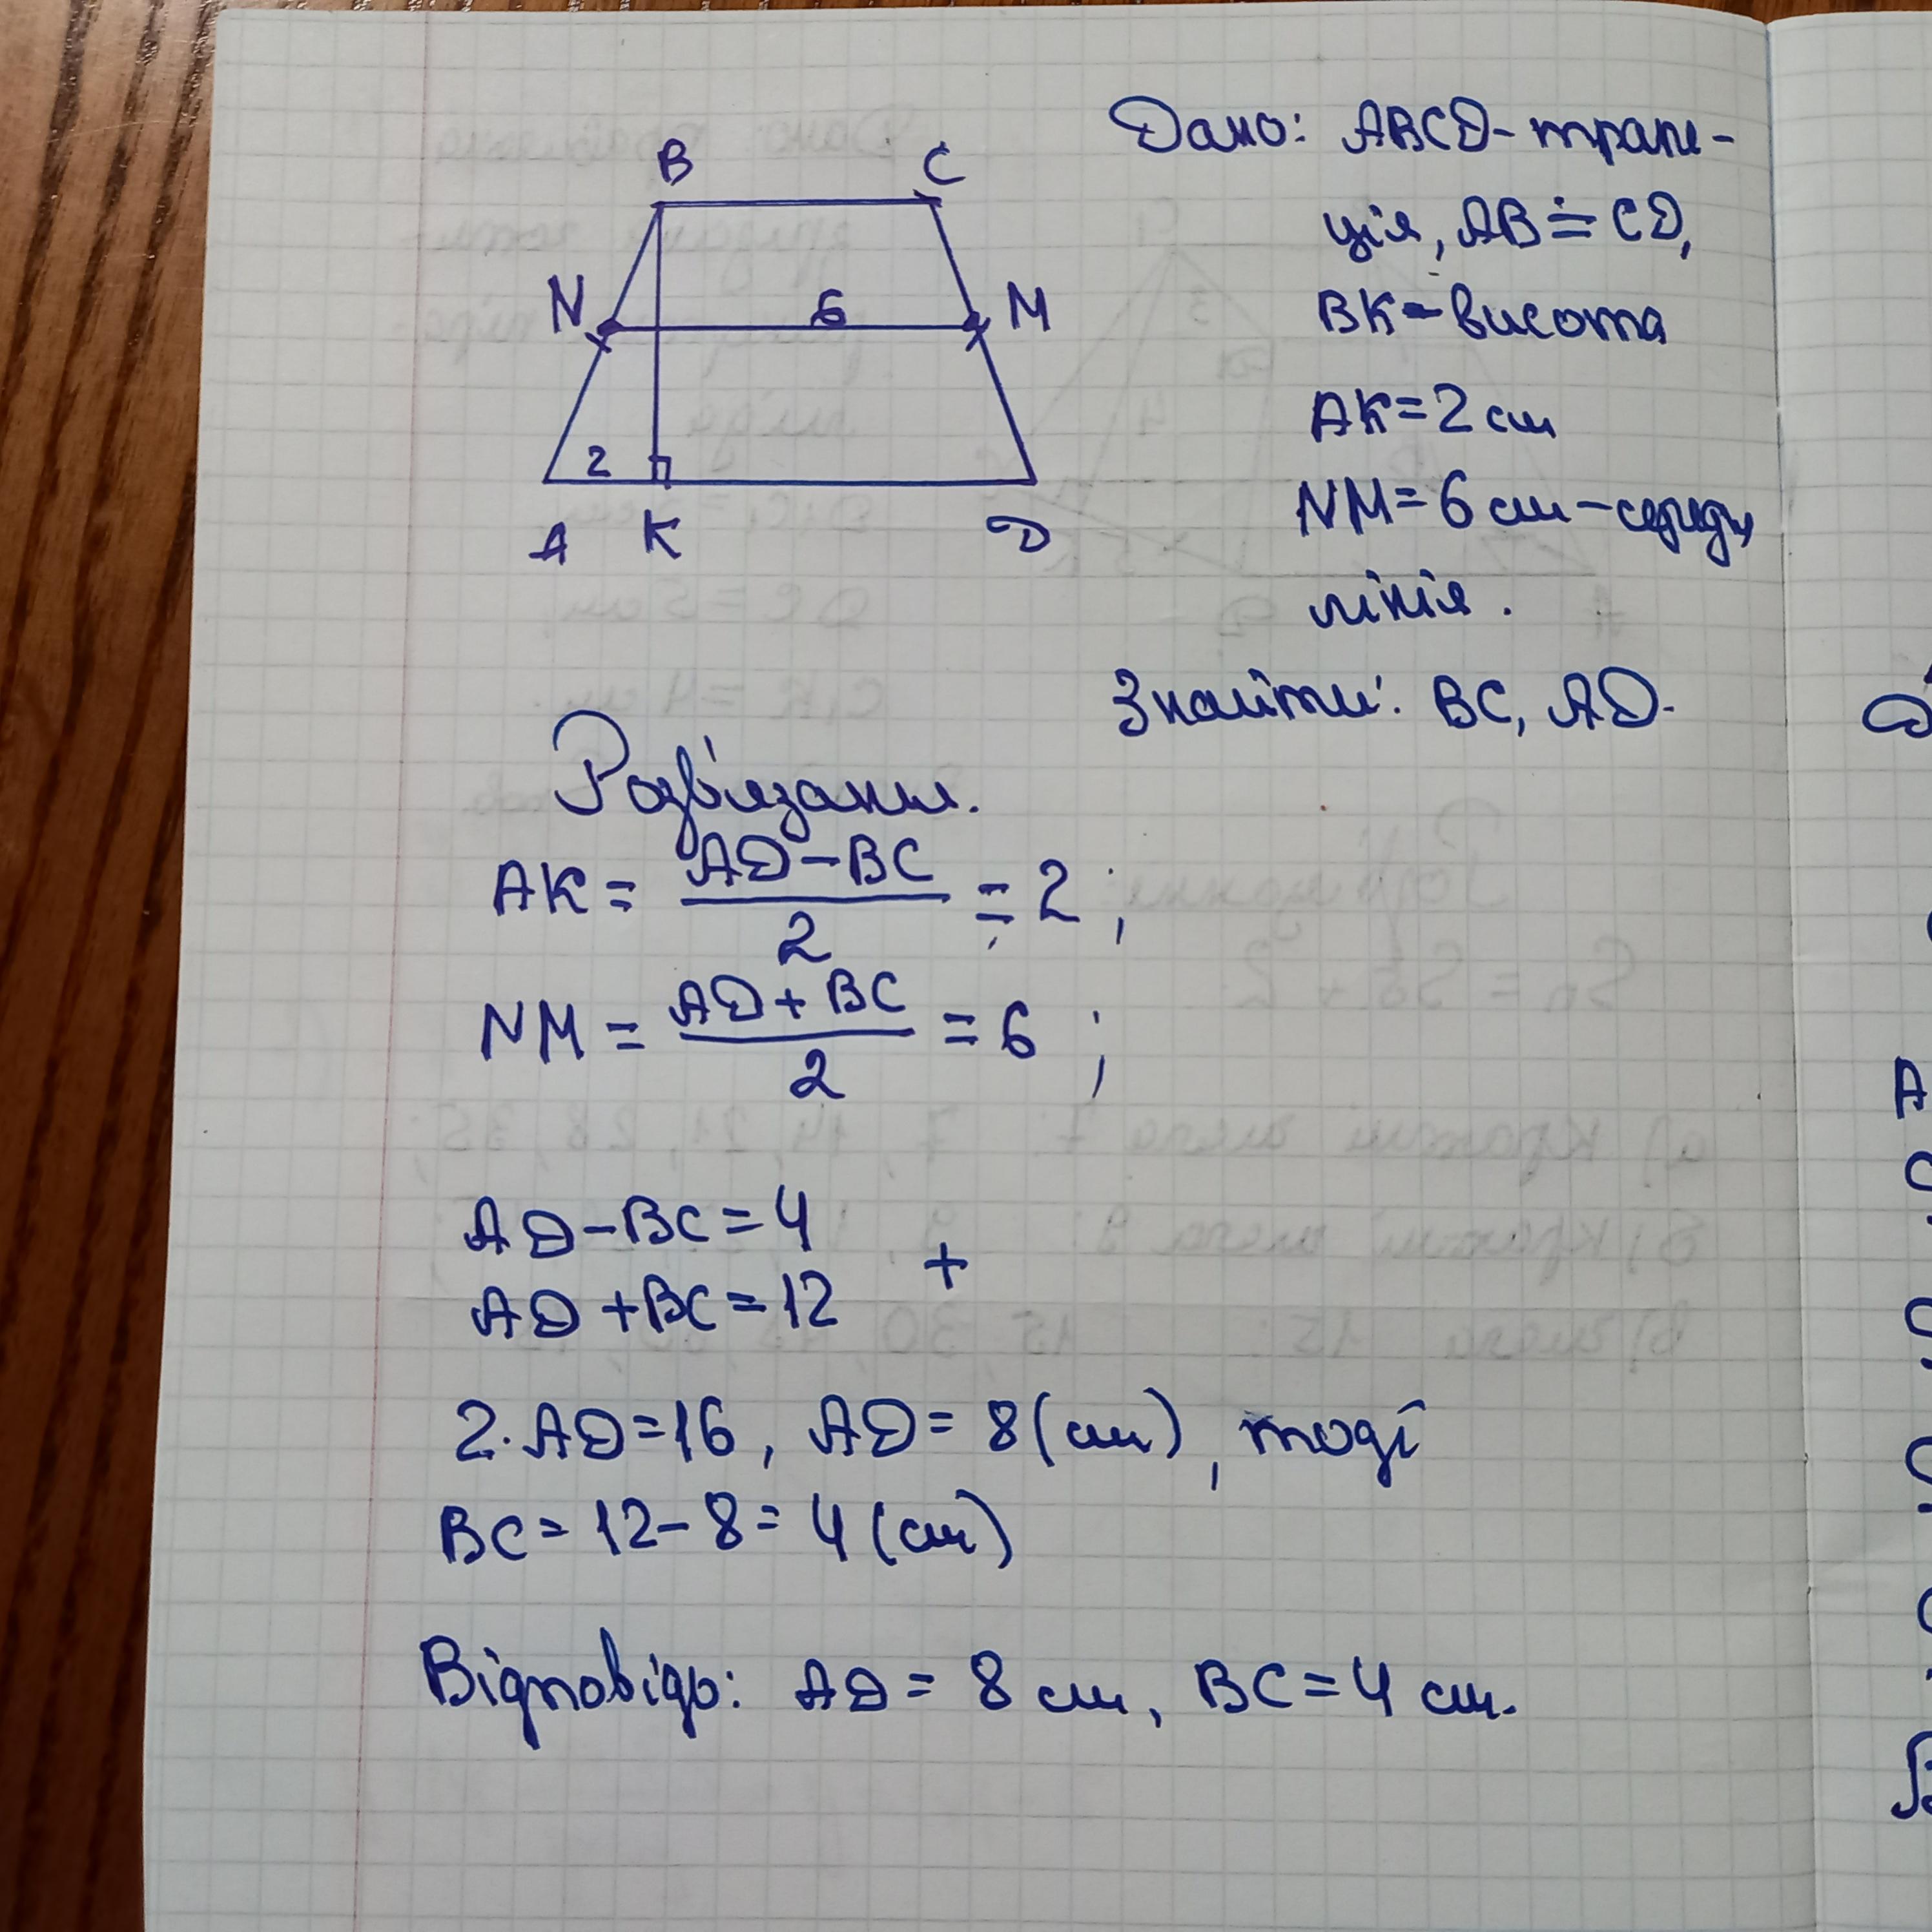 B C
N 6 M
2
A K D
Дано: ABCD - трапе-
ція, AB = CD,
BK - висота
AK = 2 см
NM = 6 см - серед.
лінія.
Знайти: BC, AD.
Розв'язання.
AK = (AD - BC)/2 = 2 ;
NM = (AD + BC)/2 = 6 ;
AD - BC = 4
+
AD + BC = 12
2·AD = 16, AD = 8 (см), тоді
BC = 12 - 8 = 4 (см)
Відповідь: AD = 8 см, BC = 4 см.